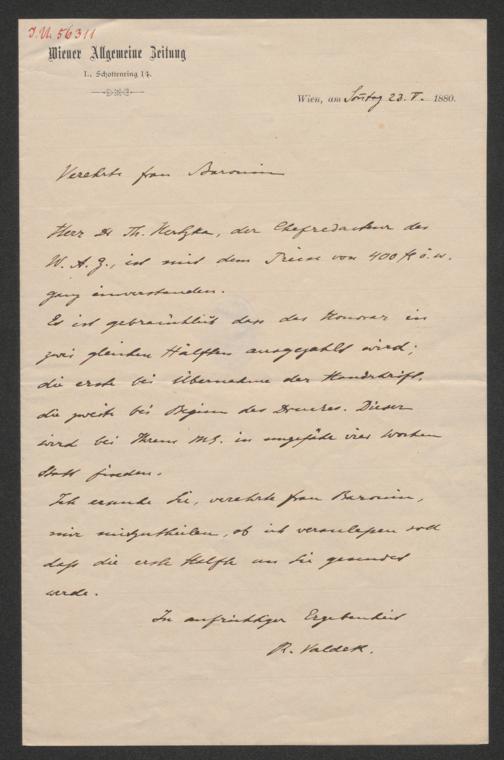 I.N. 56311
Wiener Allgemeine Zeitung
I., Schottenring 14.
Wien, am Sonntag 23. V. 1880.
Verehrte Frau Baronin
Herr Dr Th. Hertzka, der Chefredacteur der
W. A. Z., ist mit dem Preise von 400 fl ö. w.
ganz einverstanden.
Es ist gebräuchlich dass das Honorar in
zwei gleichen Hälften ausgezahlt wird;
die erste bei Übernahme der Handschrift,
die zweite bei Beginn des Druckes. Dieser
wird bei Ihrem MS. in ungefähr vier Wochen
statt finden.
Ich ersuche Sie, verehrte Frau Baronin,
mir mitzutheilen, ob ich veranlassen soll
daß die erste Hälfte an Sie gesendet
werde.
In aufrichtiger Ergebenheit
R. Valdek.